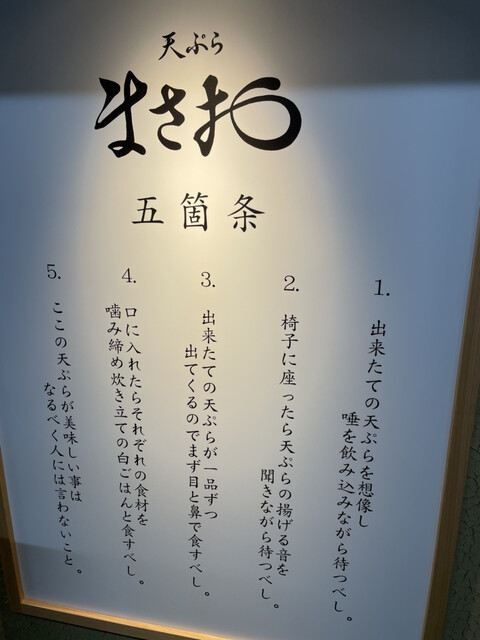 天ぷら
まさお
五箇条
1. 出来たての天ぷらを想像し
唾を飲み込みながら待つべし。
2. 椅子に座ったら天ぷらの揚げる音を
聞きながら待つべし。
3. 出来たての天ぷらが一品ずつ
出てくるのでまず目と鼻で食すべし。
4. 口に入れたらそれぞれの食材を
噛み締め炊き立ての白ごはんと食すべし。
5. ここの天ぷらが美味しい事は
なるべく人には言わないこと。